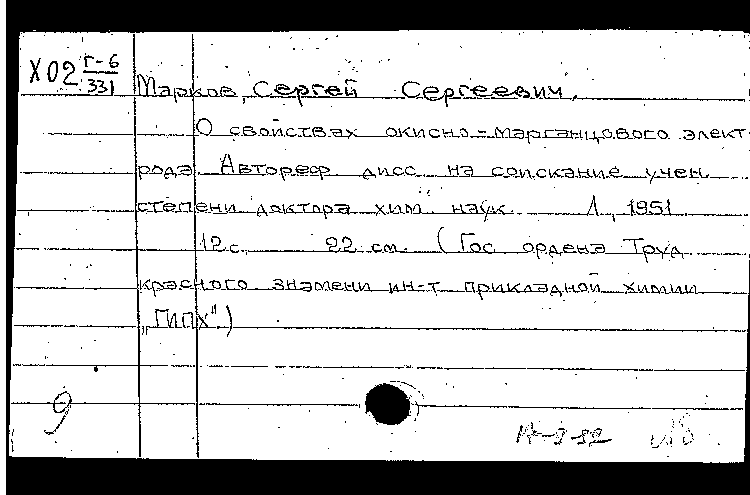 Х02 Г-6
331
Марков, Сергей Сергеевич.
О свойствах окисно-марганцового элект
рода. Автореф. дисс. на соискание учен.
степени доктора хим. наук. Л., 1951
12 с. 22 см. (Гос. ордена Труд.
красного знамени ин-т прикладной химии
„ГИПХ".)
9